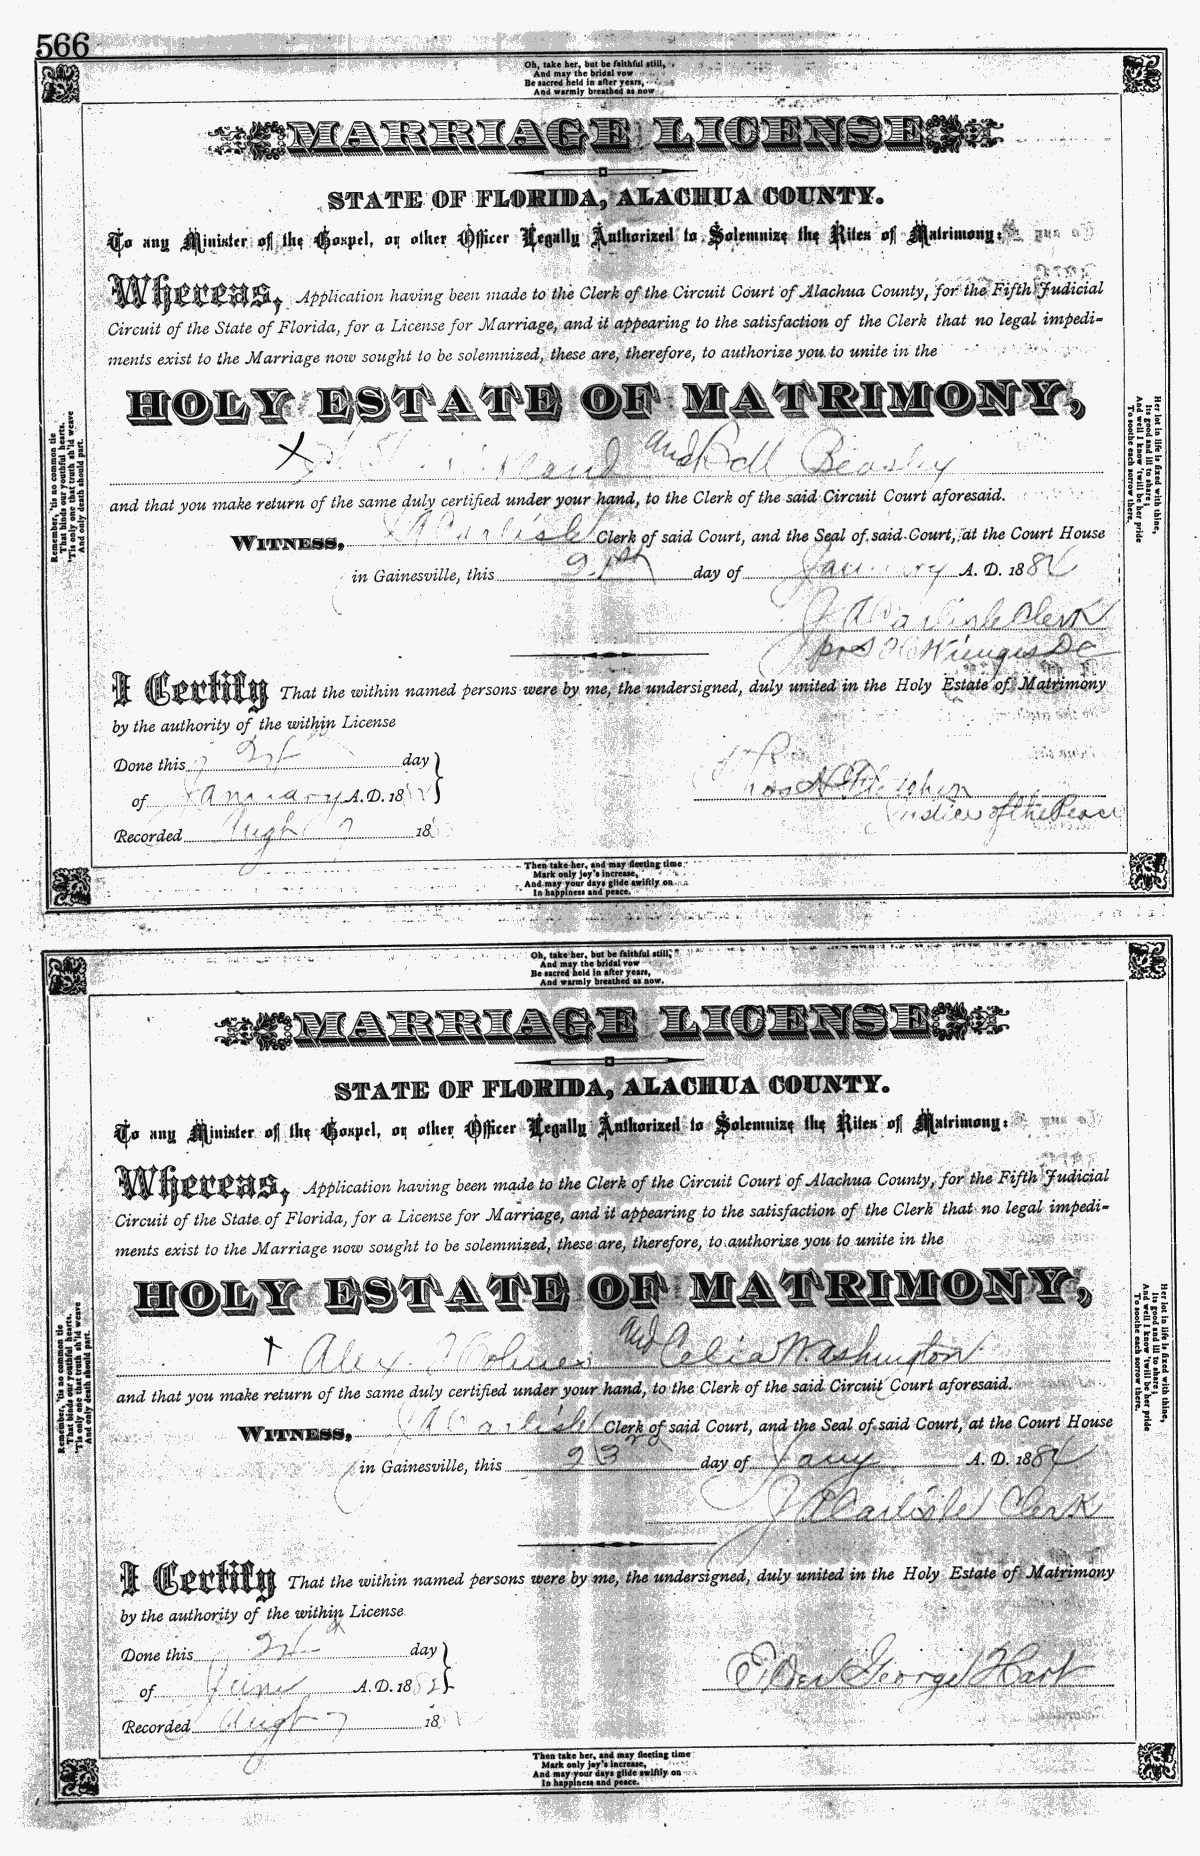 566
Oh, take her, but be faithful still,
And may the bridal vow
Be sacred held in after years,
And warmly breathed as now
MARRIAGE LICENSE
STATE OF FLORIDA, ALACHUA COUNTY.
To any Minister of the Gospel, or other Officer Legally Authorized to Solemnize the Rites of Matrimony:
Whereas, Application having been made to the Clerk of the Circuit Court of Alachua County, for the Fifth Judicial
Circuit of the State of Florida, for a License for Marriage, and it appearing to the satisfaction of the Clerk that no legal impedi-
ments exist to the Marriage now sought to be solemnized, these are, therefore, to authorize you to unite in the
HOLY ESTATE OF MATRIMONY,
and Beasley
and that you make return of the same duly certified under your hand, to the Clerk of the said Circuit Court aforesaid.
WITNESS, J A Carlisle Clerk of said Court, and the Seal of said Court, at the Court House
in Gainesville, this 21st day of January A. D. 188
J A Carlisle Clerk
DC
I Certify That the within named persons were by me, the undersigned, duly united in the Holy Estate of Matrimony
by the authority of the within License
Done this day
of January A. D. 18
Justice of the Peace
Recorded Augt 7 18
Remember, 'tis no common tie
That binds our youthful hearts,
'Tis only one that truth sh'ld weave
And only death should part.
Her lot in life is fixed with thine,
Its good and ill to share;
And well I know 'twill be her pride
To soothe each sorrow there.
Then take her, and may fleeting time
Mark only joy's increase,
And may your days glide swiftly on
In happiness and peace.
Oh, take her, but be faithful still,
And may the bridal vow
Be sacred held in after years,
And warmly breathed as now.
MARRIAGE LICENSE
STATE OF FLORIDA, ALACHUA COUNTY.
To any Minister of the Gospel, or other Officer Legally Authorized to Solemnize the Rites of Matrimony:
Whereas, Application having been made to the Clerk of the Circuit Court of Alachua County, for the Fifth Judicial
Circuit of the State of Florida, for a License for Marriage, and it appearing to the satisfaction of the Clerk that no legal impedi-
ments exist to the Marriage now sought to be solemnized, these are, therefore, to authorize you to unite in the
HOLY ESTATE OF MATRIMONY,
Alex Holmes and Celia Washington
and that you make return of the same duly certified under your hand, to the Clerk of the said Circuit Court aforesaid.
WITNESS, J A Carlisle Clerk of said Court, and the Seal of said Court, at the Court House
in Gainesville, this 23rd day of Jany A. D. 188
J A Carlisle Clerk
I Certify That the within named persons were by me, the undersigned, duly united in the Holy Estate of Matrimony
by the authority of the within License
Done this day
Elder George Hart
of June A. D. 18
Recorded Augt 7 18
Remember, 'tis no common tie
That binds our youthful hearts.
'Tis only one that truth sh'ld weave
And only death should part.
Her lot in life is fixed with thine,
Its good and ill to share;
And well I know 'twill be her pride
To soothe each sorrow there.
Then take her, and may fleeting time
Mark only joy's increase,
And may your days glide swiftly on
In happiness and peace.